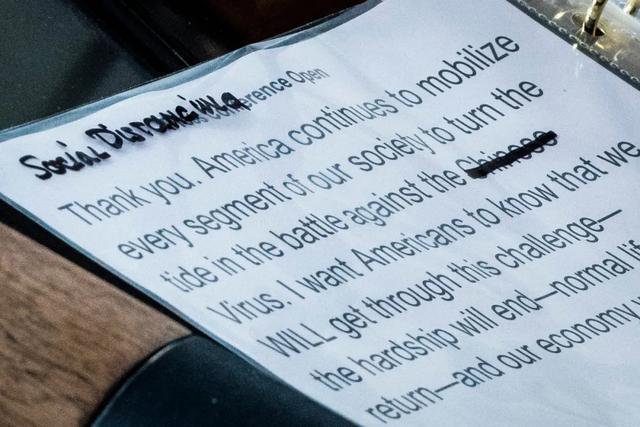 Social Distancing
erence Open
Thank you. America continues to mobilize
every segment of our society to turn the
tide in the battle against the Chinese
Virus. I want Americans to know that we
WILL get through this challenge—
the hardship will end—normal
return—and our economy